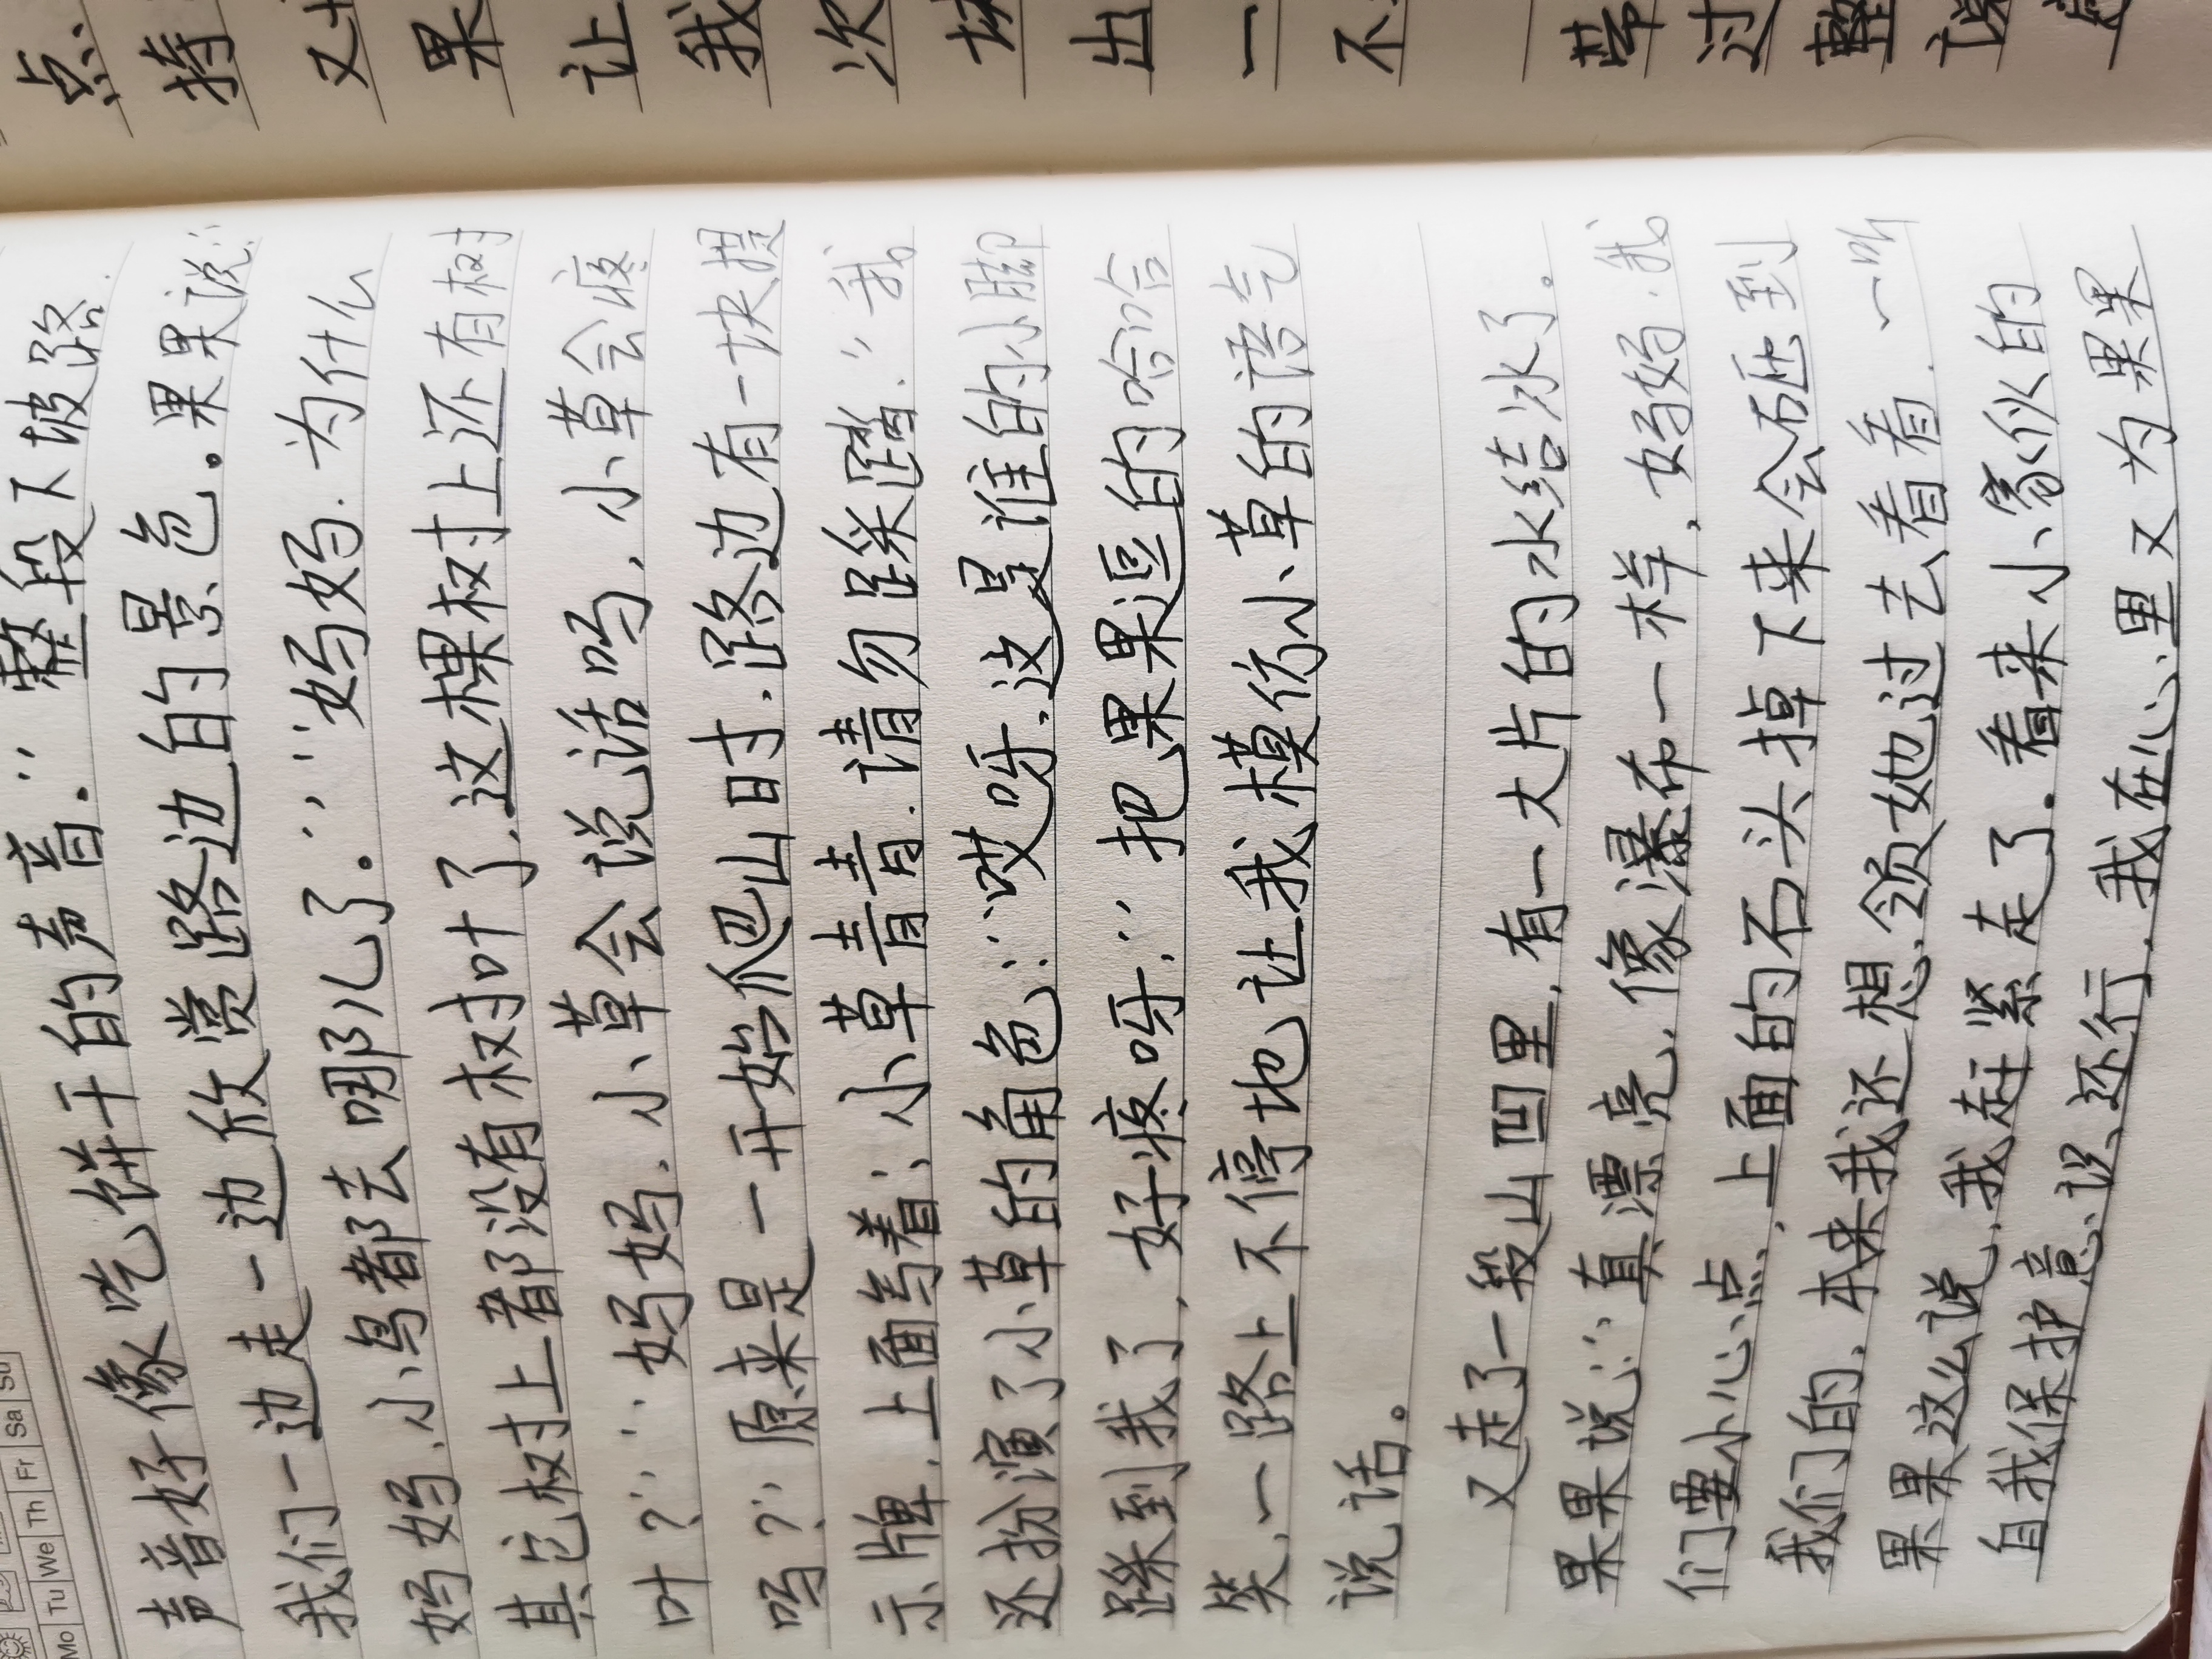 Mo Tu We Th Fr Sa Su
声音好像吃饼干的声音.” 整段下坡路.
我们一边走一边欣赏路边的景色。果果说:“
妈妈.小鸟都去哪儿了。”“妈妈.为什么
其它树上都没有树叶了.这棵树上还有树
叶?”“妈妈.小草会说话吗,小草会疼
吗?”原来是一开始爬山时.路边有一块提
示牌.上面写着:小草青青.请勿踩踏.”我
还扮演了小草的角色:“哎呀.这是谁的小脚
踩到我了,好疼呀.”把果果逗的哈哈
笑,一路上不停地让我模仿小草的语气
说话。
又走了一段山凹里,有一大片的水结冰了.
果果说:“真漂亮,像瀑布一样,妈妈.我
们要小心点,上面的石头掉下来会砸到
我们的.本来我还想领她过去看看.一听
果果这么说,我赶紧走了.看来小家伙的
自我保护意识还行.我在心里又为果果
点
持
又
果
让
我
次
出
一
不
带
过
整
说